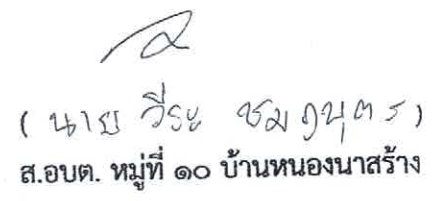 ( นาย วีระ ชมภูบุตร )
ส.อบต. หมู่ที่ ๑๐ บ้านหนองนาสร้าง